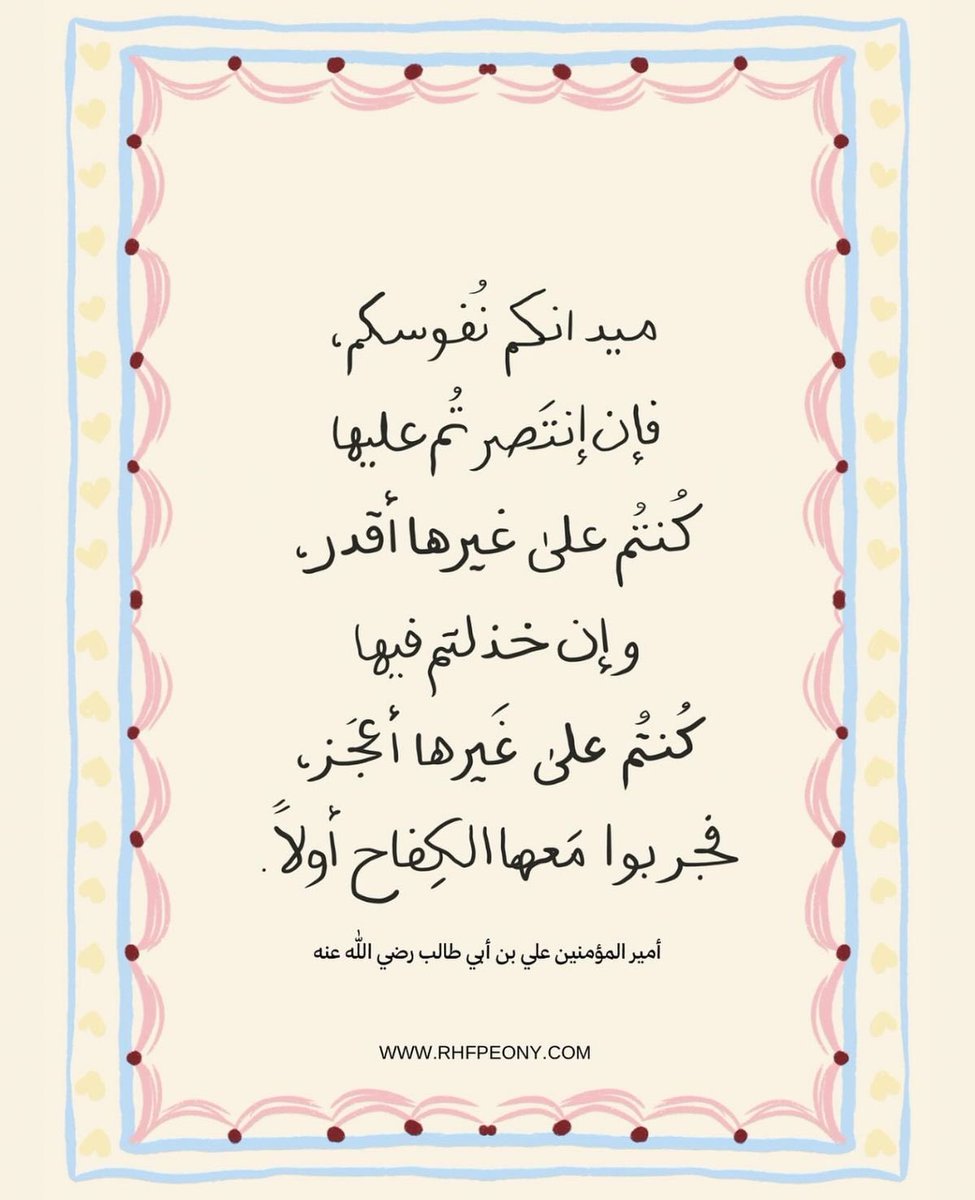 ميدانكم نُفوسكم،
فإن إنتَصرتُم عليها
كُنتُم على غيرها أقدر،
وإن خذلتم فيها
كُنتُم على غَيرها أعجَز،
فجربوا مَعها الكِفاح أولاً.
أمير المؤمنين علي بن أبي طالب رضي الله عنه
WWW.RHFPEONY.COM